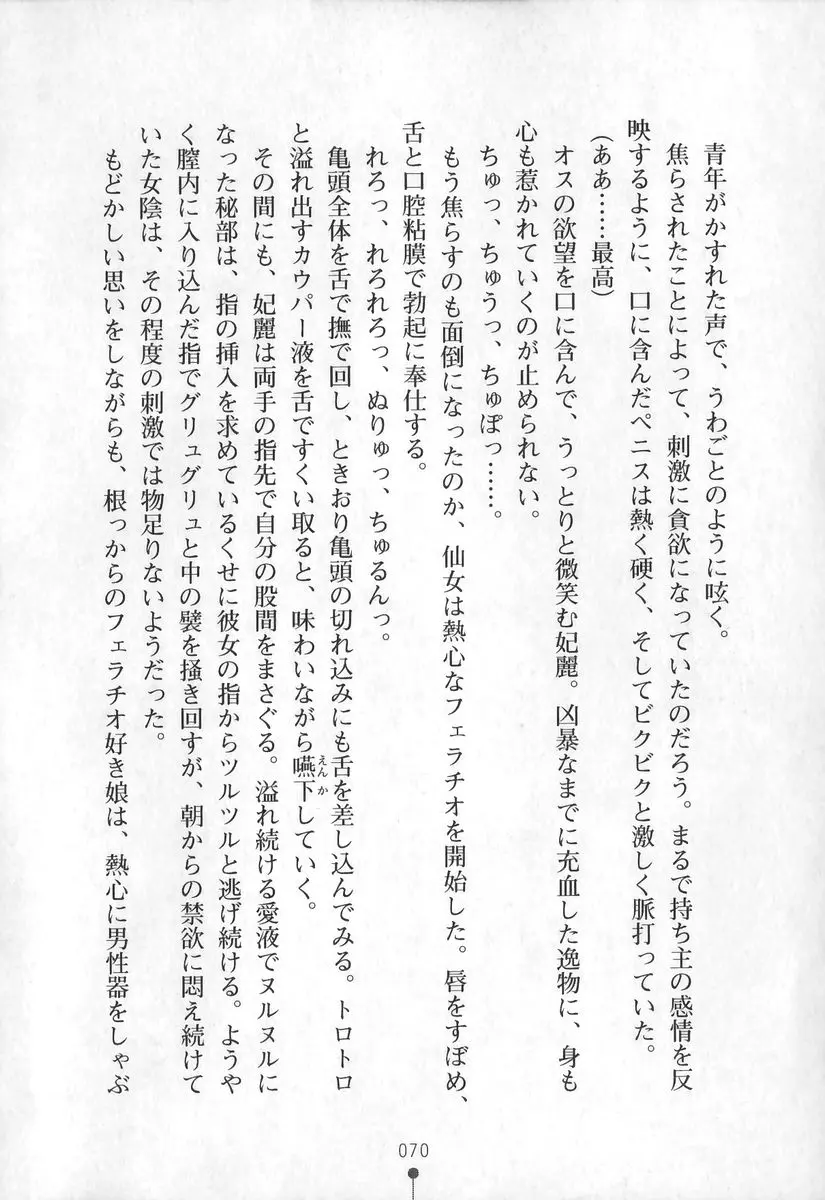 青年がかすれた声で、うわごとのように呟く。
焦らされたことによって、刺激に貪欲になっていたのだろう。まるで持ち主の感情を反
映するように、口に含んだペニスは熱く硬く、そしてビクビクと激しく脈打っていた。
(ああ……最高)
オスの欲望を口に含んで、うっとりと微笑む妃麗。凶暴なまでに充血した逸物に、身も
心も惹かれていくのが止められない。
ちゅっ、ちゅうっ、ちゅぽっ……。
もう焦らすのも面倒になったのか、仙女は熱心なフェラチオを開始した。唇をすぼめ、
舌と口腔粘膜で勃起に奉仕する。
れろっ、れろれろっ、ぬりゅっ、ちゅるんっ。
亀頭全体を舌で撫で回し、ときおり亀頭の切れ込みにも舌を差し込んでみる。トロトロ
と溢れ出すカウパー液を舌ですくい取ると、味わいながら嚥下えんかしていく。
その間にも、妃麗は両手の指先で自分の股間をまさぐる。溢れ続ける愛液でヌルヌルに
なった秘部は、指の挿入を求めているくせに彼女の指からツルツルと逃げ続ける。ようや
く膣内に入り込んだ指でグリュグリュと中の襞を掻き回すが、朝からの禁欲に悶え続けて
いた女陰は、その程度の刺激では物足りないようだった。
もどかしい思いをしながらも、根っからのフェラチオ好き娘は、熱心に男性器をしゃぶ
070